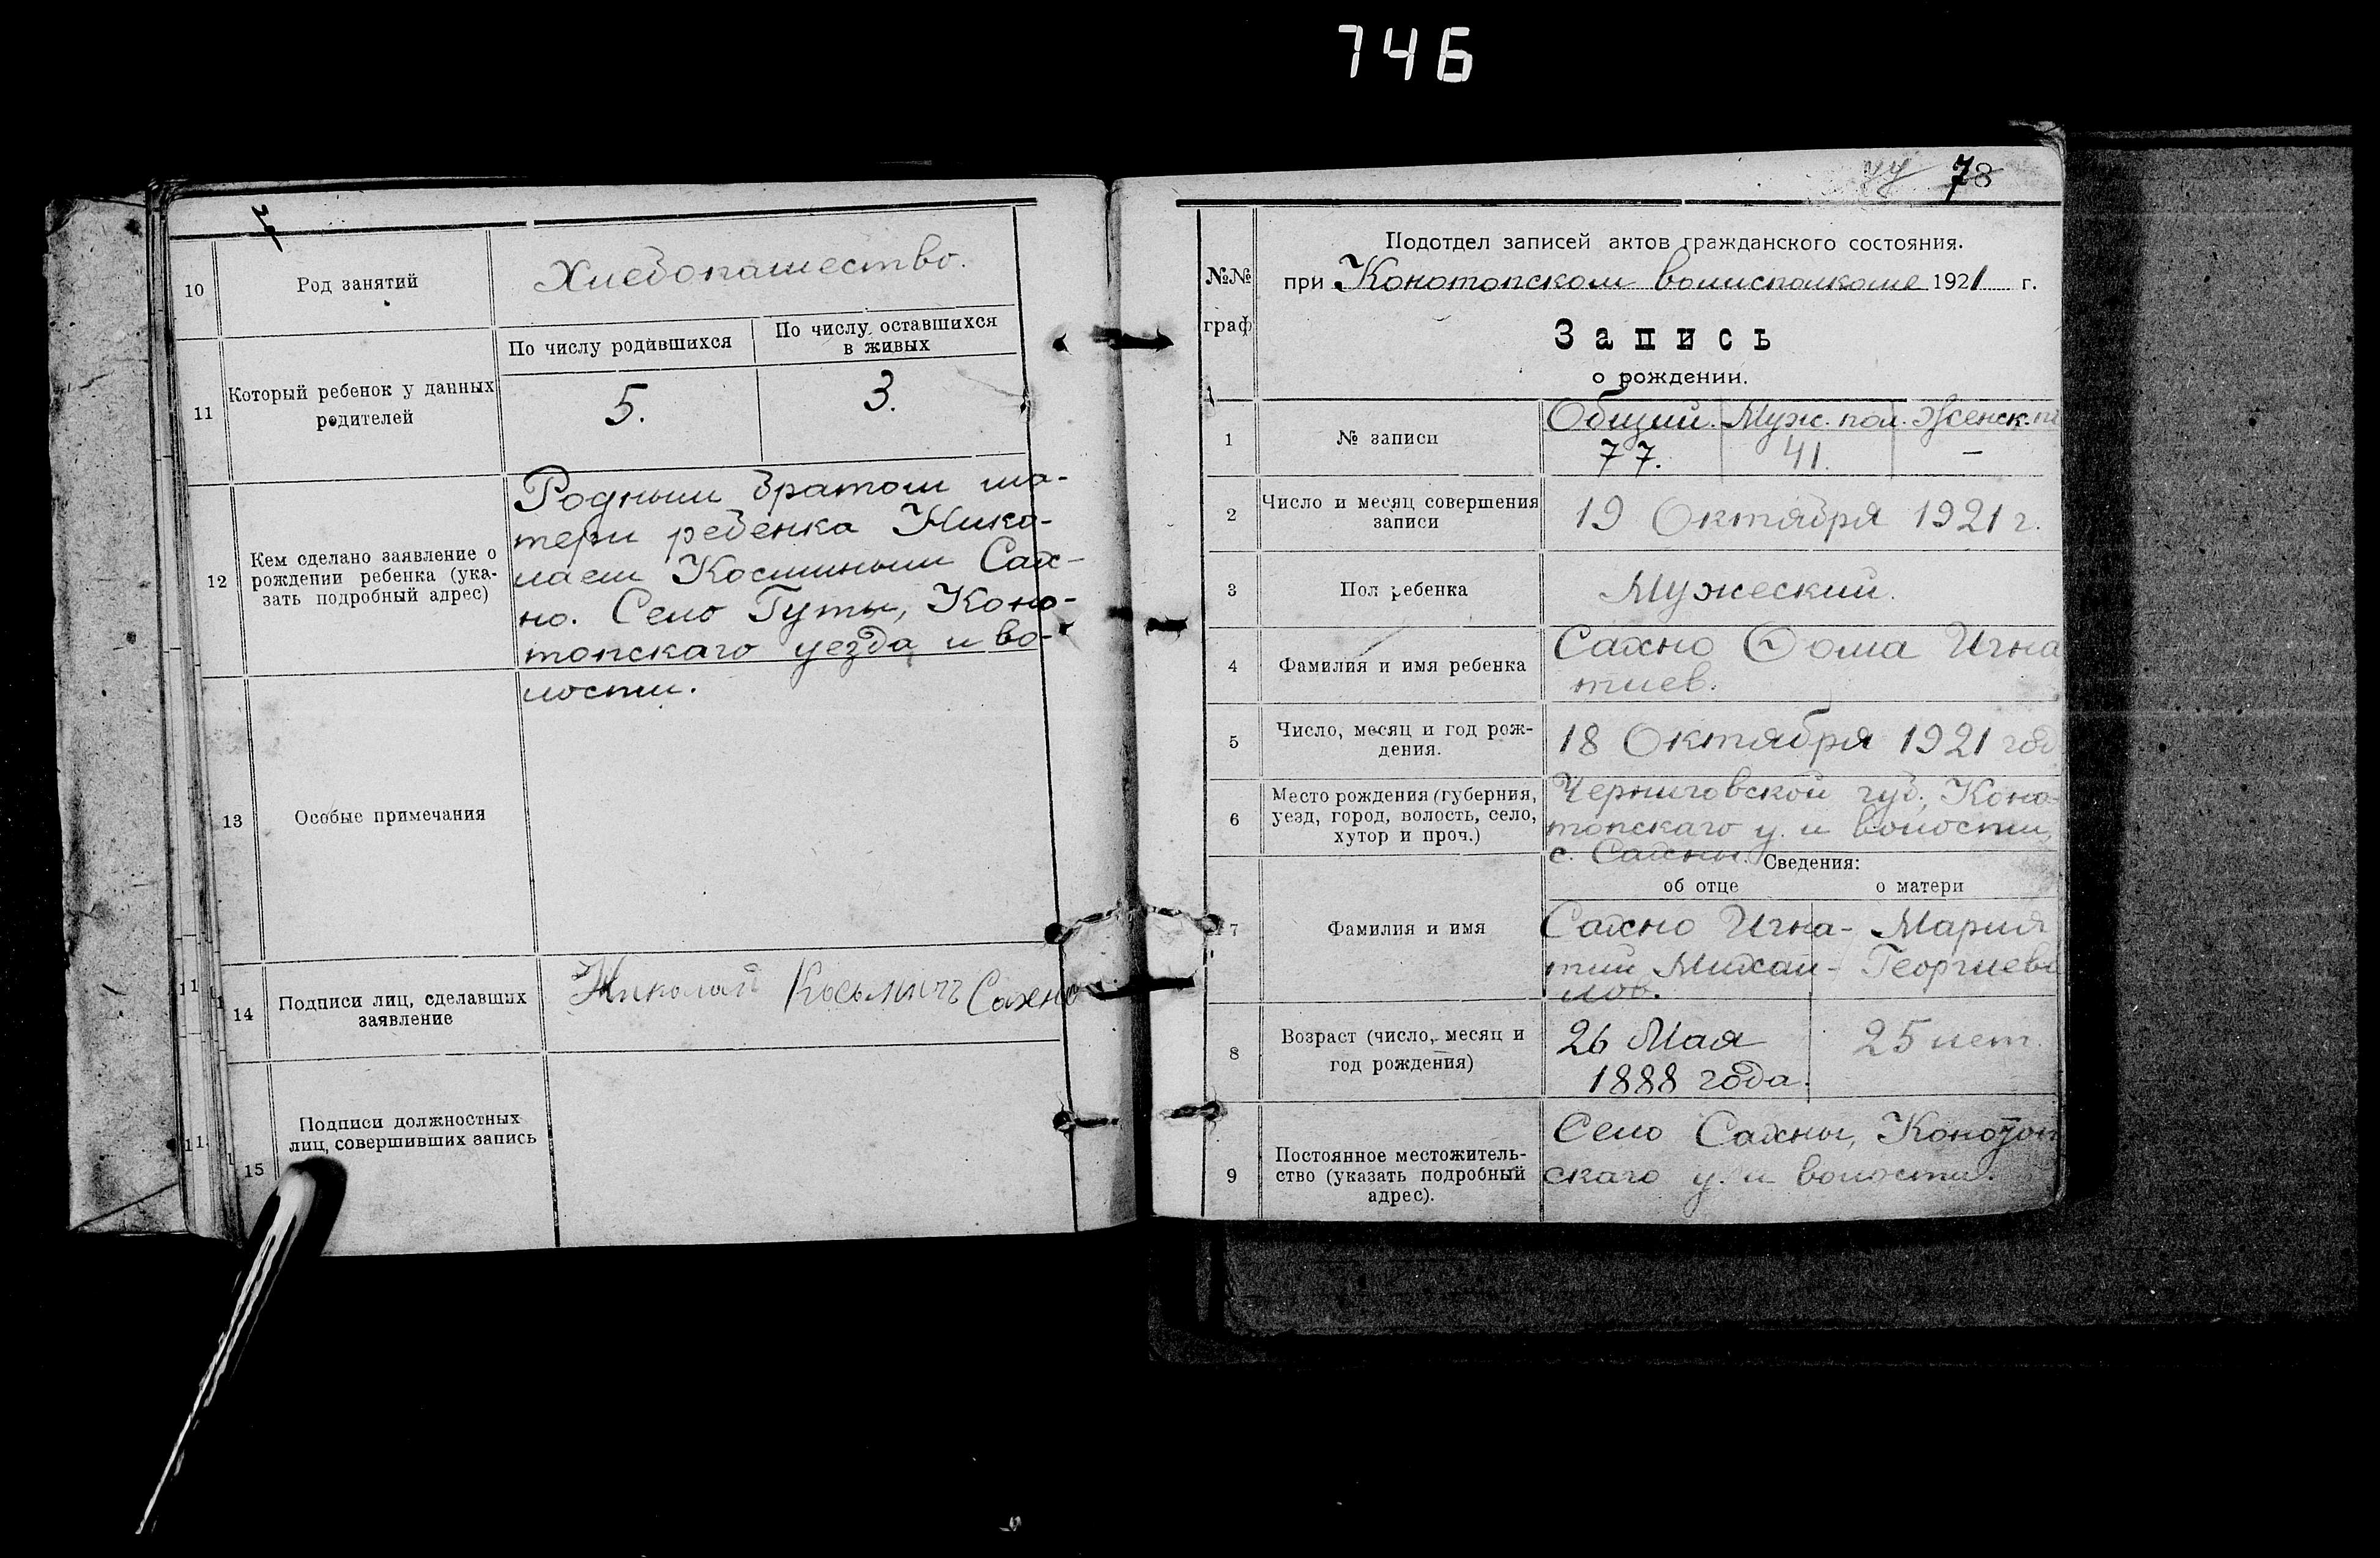 746
10
Род занятий
Хлебопашество.
11
Который ребенок у данных
родителей
По числу родившихся
По числу оставшихся
в живых
5.
3.
12
Кем сделано заявление о
рождении ребенка (ука-
зать подробный адрес)
Родным братом ма-
тери ребенка Нико-
лаем Косминым Сах-
но. Село Гуты, Коно-
топскаго уезда и во-
лости.
13
Особые примечания
14
Подписи лиц, сделавших
заявление
Николай Косьмичъ Сахно
15
Подписи должностных
лиц, совершивших запись
78
№№
граф
Подотдел записей актов гражданского состояния.
при Конотопском волисполкоме 1921 г.
Запись
о рождении.
1
№ записи
Общий. Муж. пол. Женск. п
77. 41. –
2
Число и месяц совершения
записи
19 Октября 1921 г.
3
Пол ребенка
Мужеский.
4
Фамилия и имя ребенка
Сахно Фома Игна
тиев.
5
Число, месяц и год рож-
дения.
18 Октября 1921 год
6
Место рождения (губерния,
уезд, город, волость, село,
хутор и проч.)
Черниговской губ., Коно-
топскаго у. и волости,
с. Сахны.
Сведения:
об отце о матери
7
Фамилия и имя
Сахно Игна-
тий Михай-
лов.
Мария
Георгиев
8
Возраст (число, месяц и
год рождения)
26 Мая
1888 года.
25 лет.
9
Постоянное местожитель-
ство (указать подробный
адрес).
Село Сахны, Конотоп
скаго у. и волости.